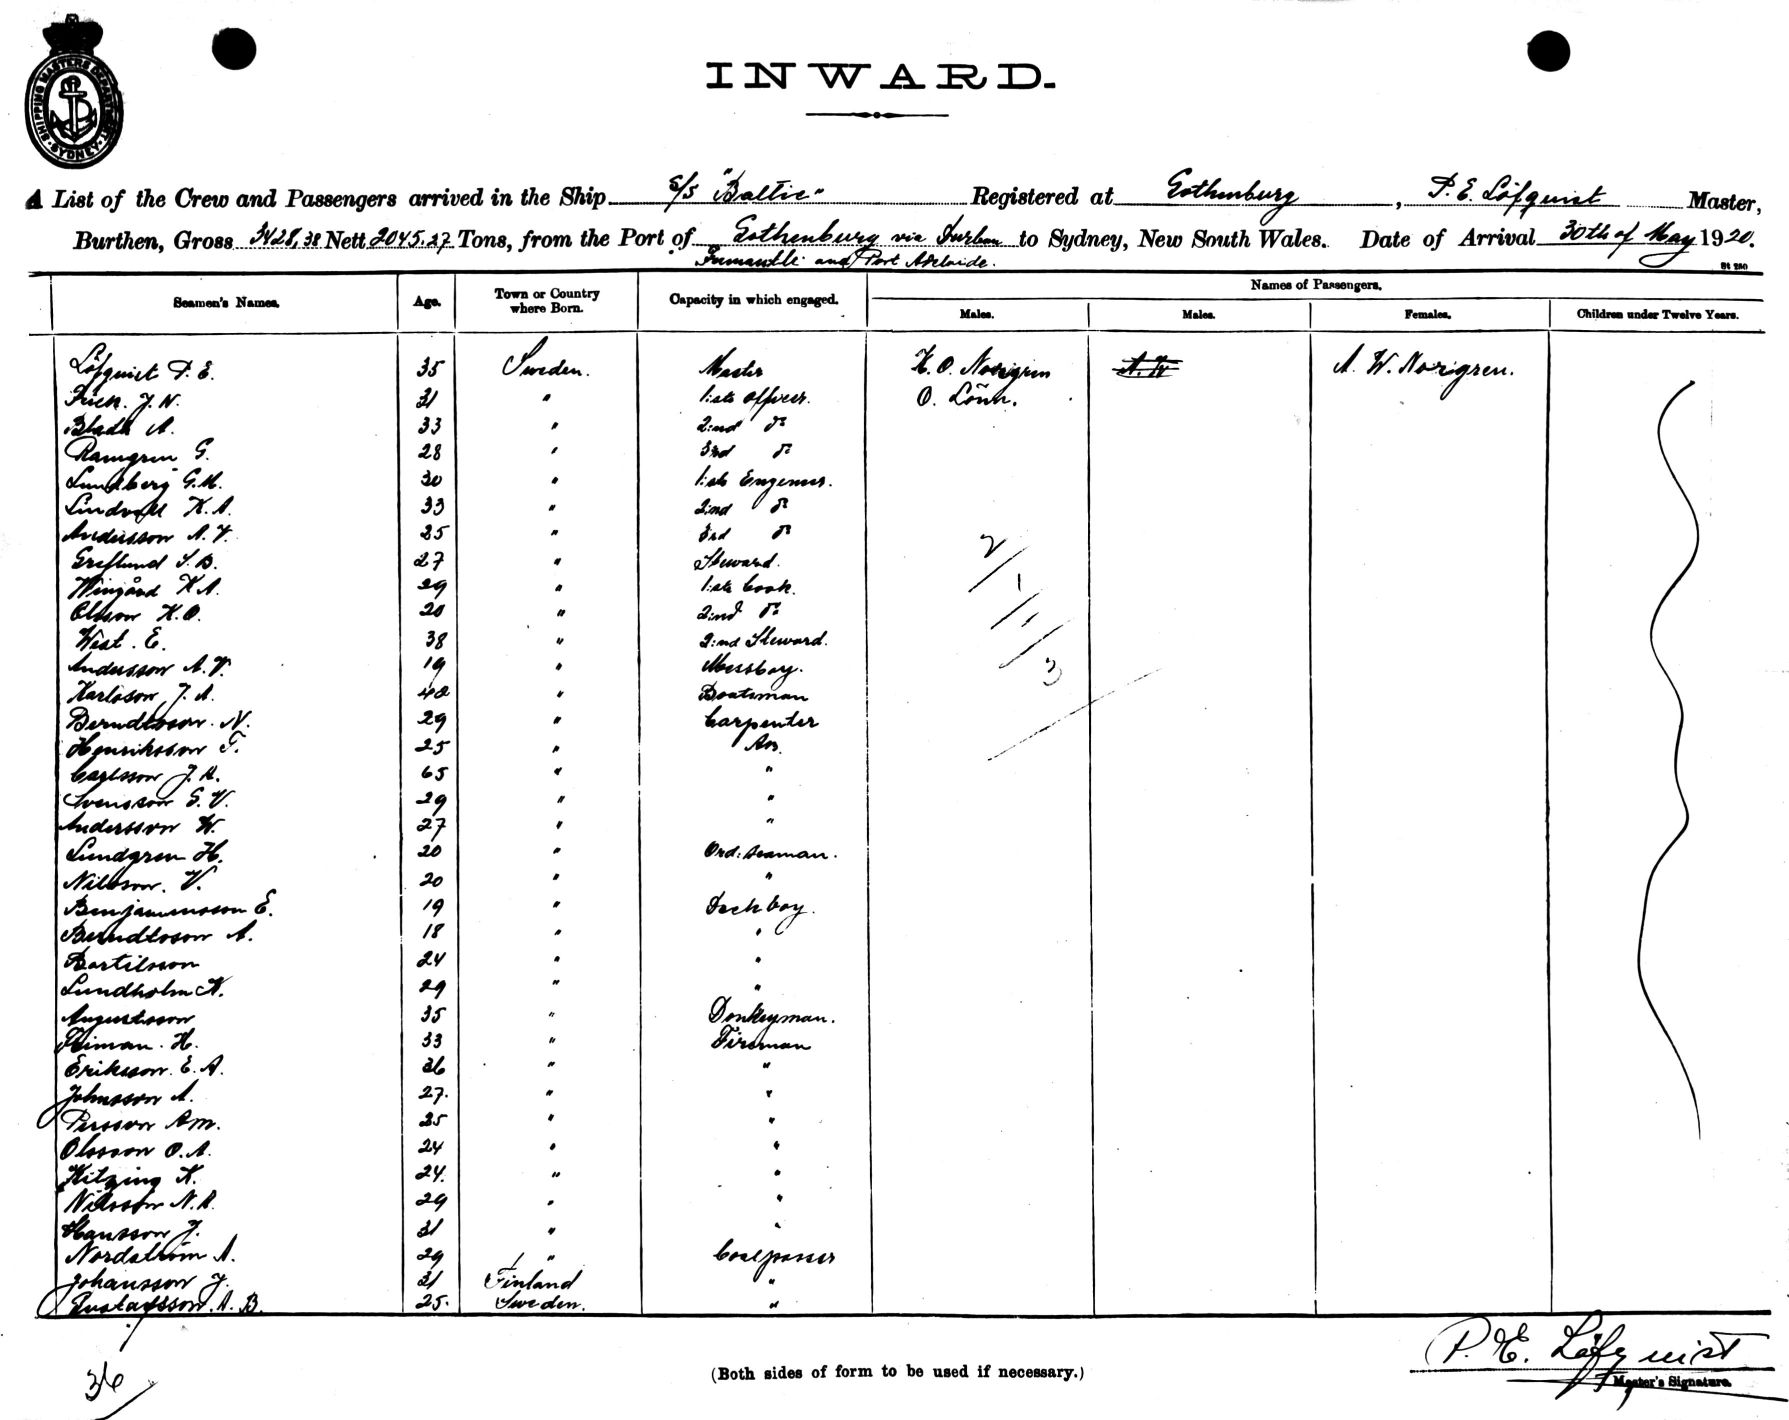 SHIPPING MASTERS DEPARTMENT
SYDNEY
INWARD.
A List of the Crew and Passengers arrived in the Ship S/S "Baltic" Registered at Gothenburg, P. E. Löfquist Master,
Burthen, Gross 3428,38 Nett 2045,27 Tons, from the Port of Gothenburg via Durban to Sydney, New South Wales. Date of Arrival 30th of May 1920.
Fremantle and Port Adelaide.
St 250
Seamen's Names. Age. Town or Country where Born. Capacity in which engaged. Names of Passengers.
Males. Males. Females. Children under Twelve Years.
Löfquist P. E. 35 Sweden. Master K. O. Norigren A. W A. W. Norigren.
Frick. J. N. 31 " 1:ste officer. O. Lönn.
Bladh A. 33 " 2:nd do
Ramgren G. 28 " 3rd do
Lundberg G.M. 30 " 1:ste Engeneer.
Lindvall K. A. 33 " 2:nd do
Andersson A. V. 25 " 3rd do
Greflund S. B. 27 " Steward.
Wingård K A. 29 " 1:ste Cook.
Olsson K. O. 20 " 2:nd do
West. E. 38 " 2:nd Steward.
Andersson A. V. 19 " Messboy.
Karlsson J. A. 42 " Boatsman
Berndtsson. N. 29 " Carpenter
Henriksson F. 25 " AB.
Carlsson J. A. 65 " "
Svensson G. V. 29 " "
Andersson W. 27 " "
Lundgren H. 20 " Ord: seaman.
Nilsson. V. 20 " "
Benjaminsson E. 19 " Deckboy.
Berndtsson A. 18 " "
Bertilsson 24 " "
Lundholm K. 29 " "
Augustsson 35 " Donkeyman.
Heiman. H. 33 " Fireman
Eriksson. E. A. 36 " "
Johnsson A. 27. " "
Persson Am. 25 " "
Olsson O. A. 24 " "
Kitzing K. 24. " "
Nilsson N. A. 29 " "
Hansson J. 31 " "
Nordström A. 29 " Coalpasser
Johansson J. 31 Finland "
Gustafsson. A. B. 25. Sweden. "
2/1/1/3
36
(Both sides of form to be used if necessary.)
P. E. Löfquist
Master's Signature.